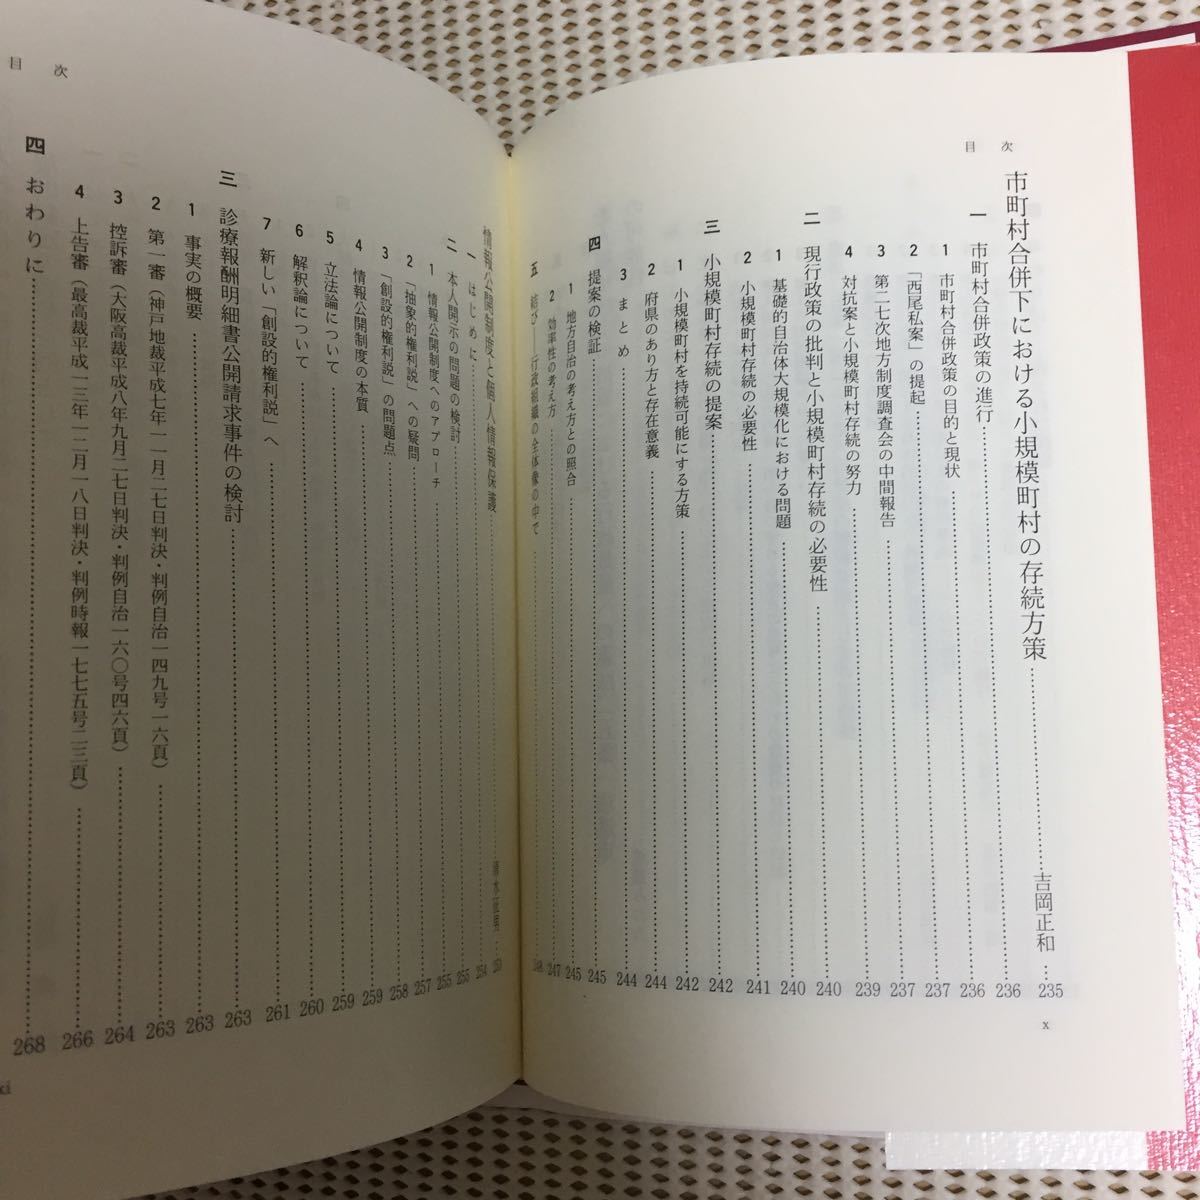 目次
市町村合併下における小規模町村の存続方策……吉岡正和…235
一 市町村合併政策の進行……236
1 市町村合併政策の目的と現状……236
2 「西尾私案」の提起……237
3 第二七次地方制度調査会の中間報告……237
4 対抗案と小規模町村存続の努力……239
二 現行政策の批判と小規模町村存続の必要性……240
1 基礎的自治体大規模化における問題……240
2 小規模町村存続の必要性……241
三 小規模町村存続の提案……242
1 小規模町村を持続可能にする方策……242
2 府県のあり方と存在意義……244
3 まとめ……244
四 提案の検証……245
1 地方自治の考え方との照合……245
2 効率性の考え方……247
五 結び――行政組織の全体像の中で……248
x
目次
情報公開制度と個人情報保護……男…253
一 はじめに……254
二 本人開示の問題の検討……255
1 情報公開制度へのアプローチ……255
2 「抽象的権利説」への疑問……257
3 「創設的権利説」の問題点……258
4 情報公開制度の本質……259
5 立法論について……259
6 解釈論について……260
7 新しい「創設的権利説」へ……261
三 診療報酬明細書公開請求事件の検討……263
1 事実の概要……263
2 第一審（神戸地裁平成七年一一月二七日判決・判例自治一四九号一六頁）……263
3 控訴審（大阪高裁平成八年九月二七日判決・判例自治一六〇号四六頁）……264
4 上告審（最高裁平成一三年一二月一八日判決・判例時報一七七五号二三頁）……266
四 おわりに……268
xi